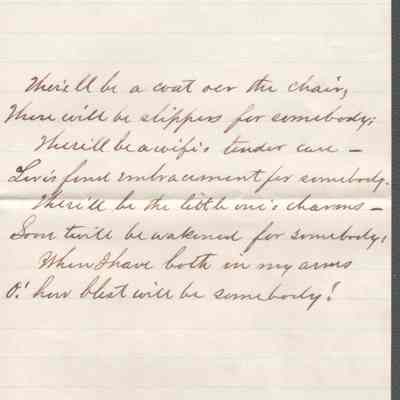 There'll be a coat oer the chair,
There will be slippers for somebody;
There'll be a wife's tender care –
Love's fond embracement for somebody.
There'll be the little one's charms –
Soon twill be wakened for somebody,
When I have both in my arms
O! how blest will be somebody!